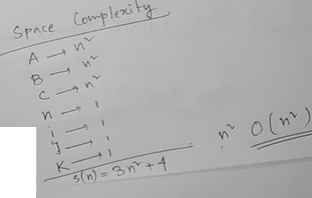 Space Complexity
A → n²
B → n²
C → n²
n → 1
i → 1
j → 1
K → 1
s(n) = 3n² + 4
n² O(n²)